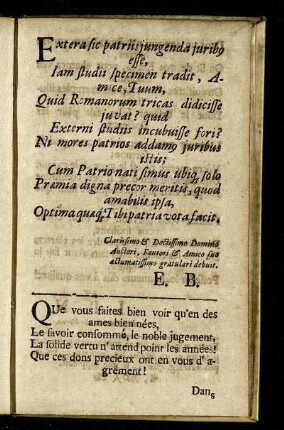 Extera sic patriis jungenda juribꝰ
esse,
Iam studii specimen tradit, A-
mice, Tuum,
Quid Romanorum tricas didicisse
juvat? quid
Externi studiis incubuisse fori?
Ni mores patrios addamꝰ juribus
istis;
Cum Patrio nati simus ubiq, solo
Præmia digna precor meritis, quod
amabilis ipsa,
Optima quæq, Tibi patria vota facit,
Clarissimo & Doctissimo Domino
Auctori, Fautori & Amico suo
æstumatissimo gratulari debuit.
E. B,
QUe vous faites bien voir qu'en des
ames bien nées,
Le savoir consommé, le noble jugement,
La solide vertu n'attend point les années!
Que ces dons precieux ont en vous d'a-
grément!
Dans